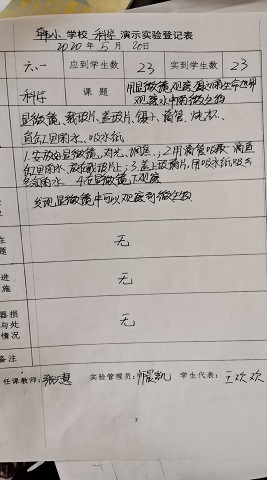 小 学校 科学 演示实验登记表
2020 年 5 月 20日
六.一 应到学生数 23 实到学生数 23
科学 课题 用显微镜观察
观察水中的微生物
显微镜、载玻片、盖玻片、镊子、滴管、烧杯、
鱼缸里雨水、吸水纸
1.安放好显微镜,对光、调整;2.用滴管吸取
缸里雨水,放在载玻片上;3.盖上玻璃片,用吸水纸吸去
多余雨水 4.在显微镜下观察
发现显微镜中可以观察到微生物
在
题
无
进
施
无
器损
与处
情况
无
备注
任课教师: 实验管理员: 学生代表: 王欢欢